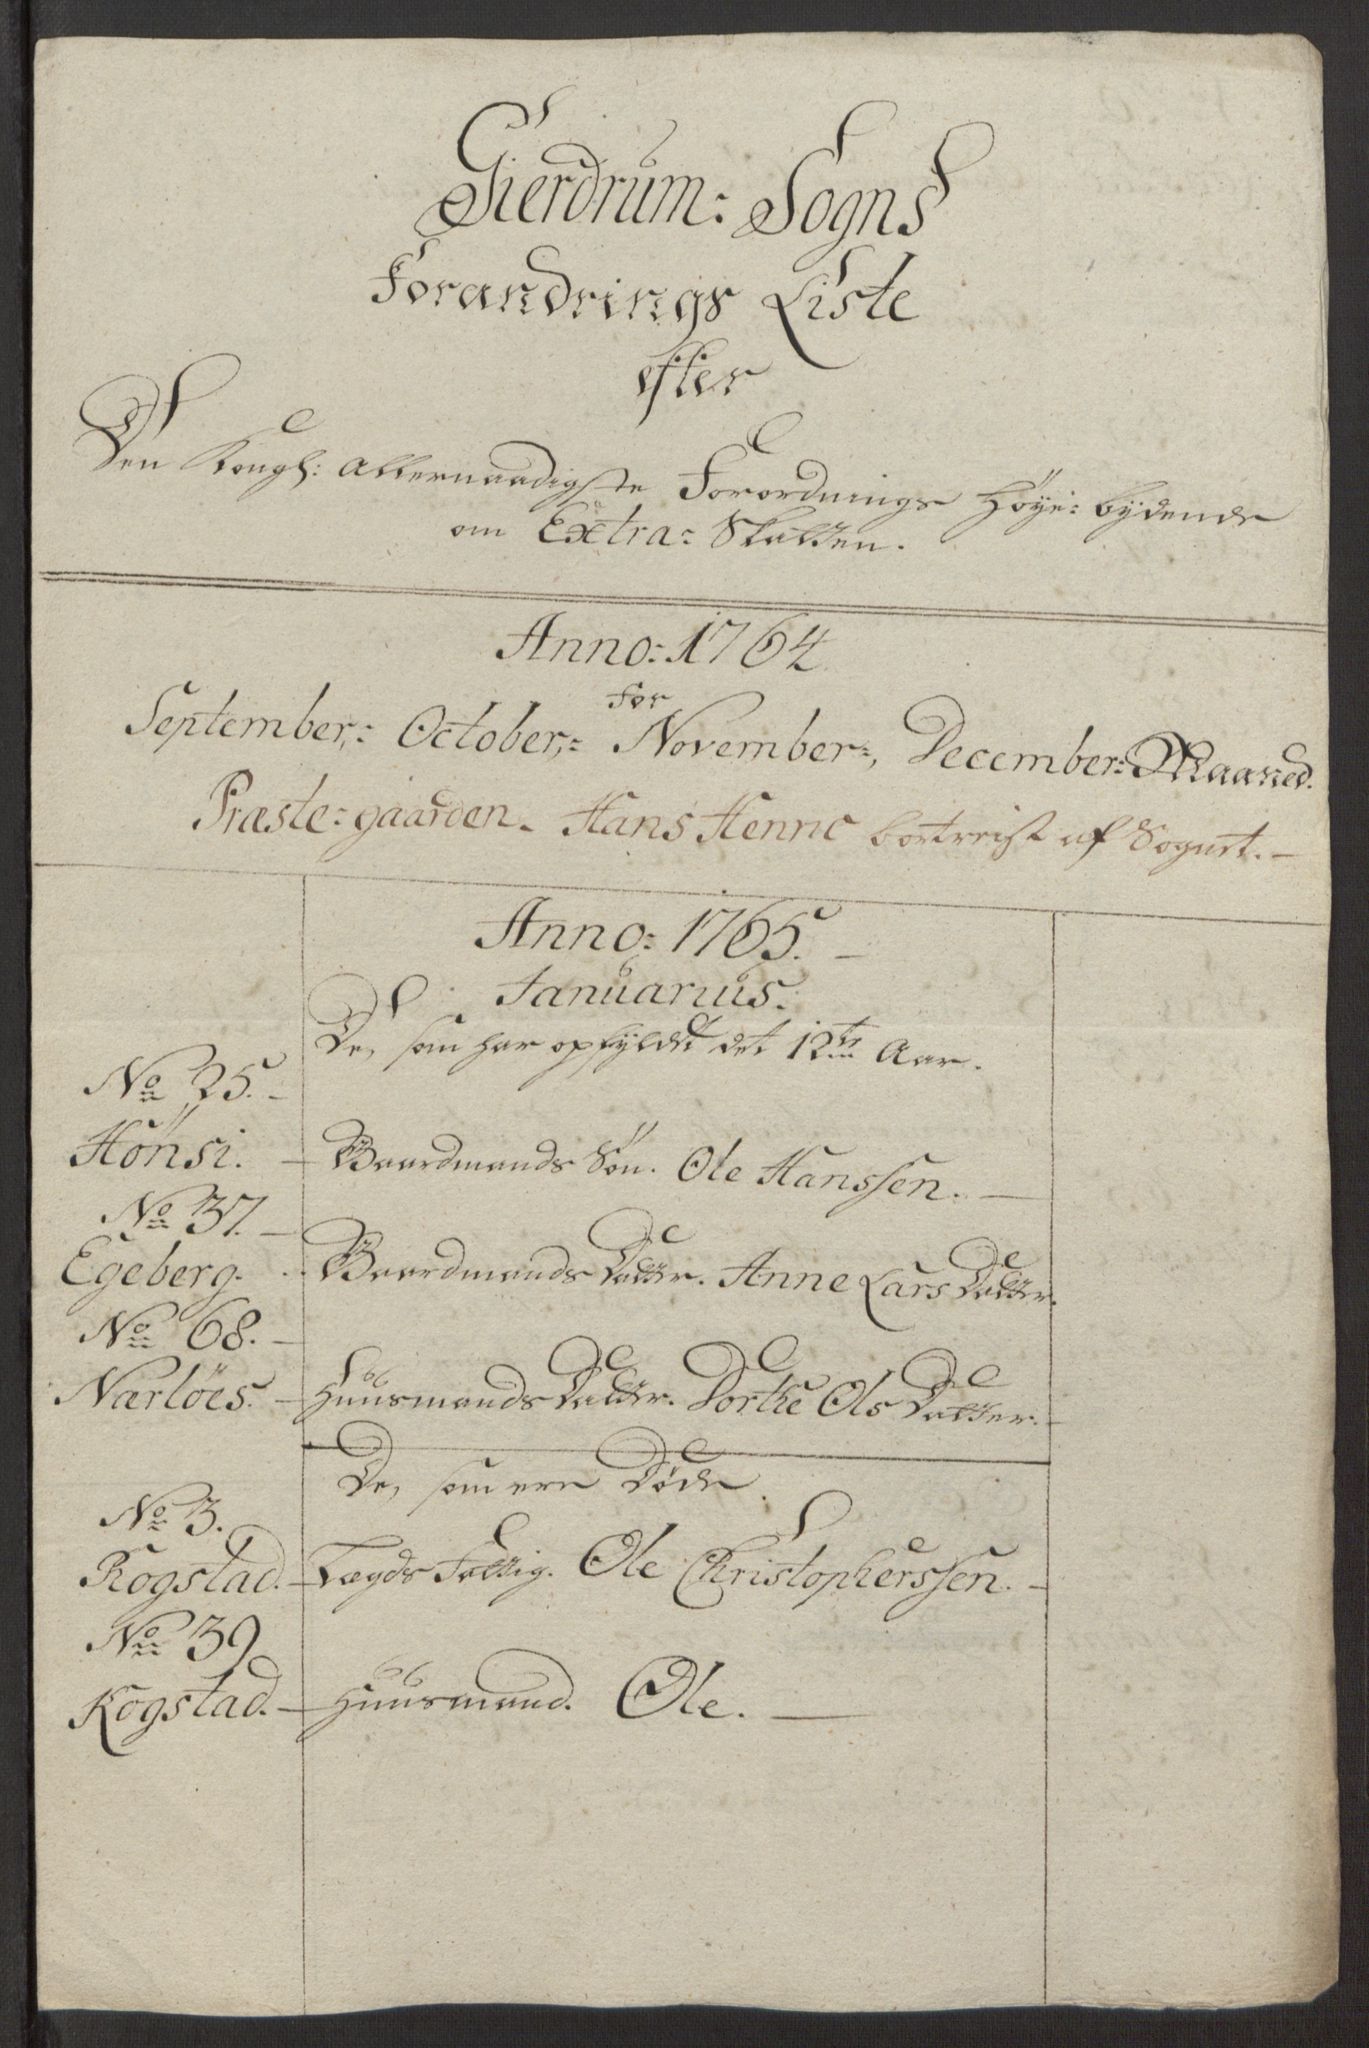 Gierdrum: Sogns
Forandrings Liste
efter
Den Kongl: Allernaadigste Forordnings Høye: bydende
om Extra: Skatten.
Anno: 1764
for
September,: October,: November:, December: Maaned.
Præste: gaarden. Hans Henric bortreist af Sognet. —
Anno: 1765. —
Januarius.
De, som har opfyldt det 12te Aar.
No 25. —
Hönsi. — Gaardmands Sön. Ole Hanssen. —
No 37. —
Egeberg. Gaardmands Datter. Anne Lars Datter.
No 68. —
Nærlöes. — Huusmands Datter. Dorthe Ols Datter. —
De, som ere Døde.
No 3.
Rogstad. — Lægds Fattig. Ole Christopherssen. —
No 39
Kogstad. — Huusmand. Ole. —